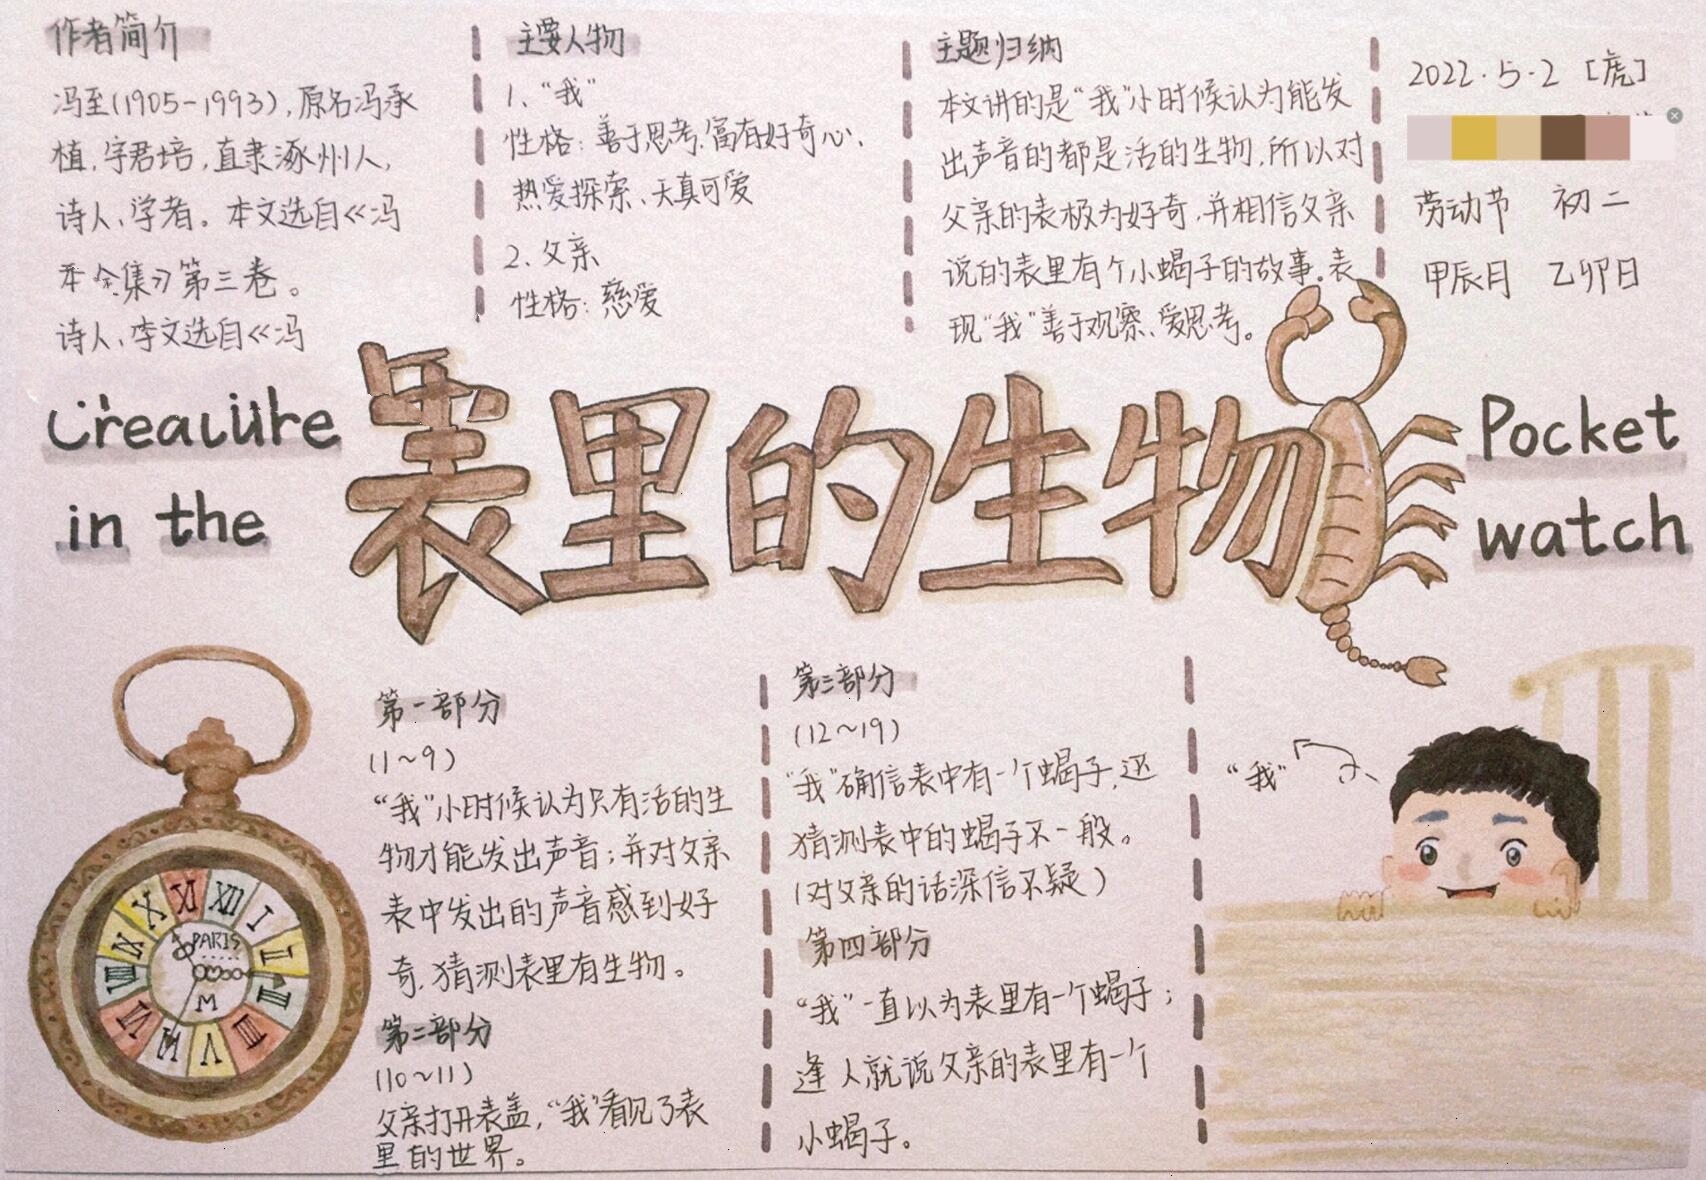 作者简介
冯至(1905-1993),原名冯承
植,字君培,直隶涿州人,
诗人、学者。本文选自《冯
全集》第三卷。
诗人、李文选自《冯
主要人物
1、“我”
性格：善于思考、富有好奇心、
热爱探索、天真可爱
2、父亲
性格：慈爱
主题归纳
本文讲的是“我”小时候认为能发
出声音的都是活的生物,所以对
父亲的表极为好奇,并相信父亲
说的表里有个小蝎子的故事。表
现“我”善于观察、爱思考。
2022·5·2 [虎]
劳动节 初二
甲辰月 乙卯日
Creature
in the
表里的生物
Pocket
watch
XII
I
II
III
IIII
V
VI
VII
VIII
IX
X
XI
PARIS
M
第一部分
(1～9)
“我”小时候认为只有活的生
物才能发出声音；并对父亲
表中发出的声音感到好
奇,猜测表里有生物。
第二部分
(10～11)
父亲打开表盖,“我”看见了表
里的世界。
第三部分
(12～19)
“我”确信表中有一个蝎子,还
猜测表中的蝎子不一般。
(对父亲的话深信不疑)
第四部分
“我”一直以为表里有一个蝎子；
逢人就说父亲的表里有一个
小蝎子。
“我”